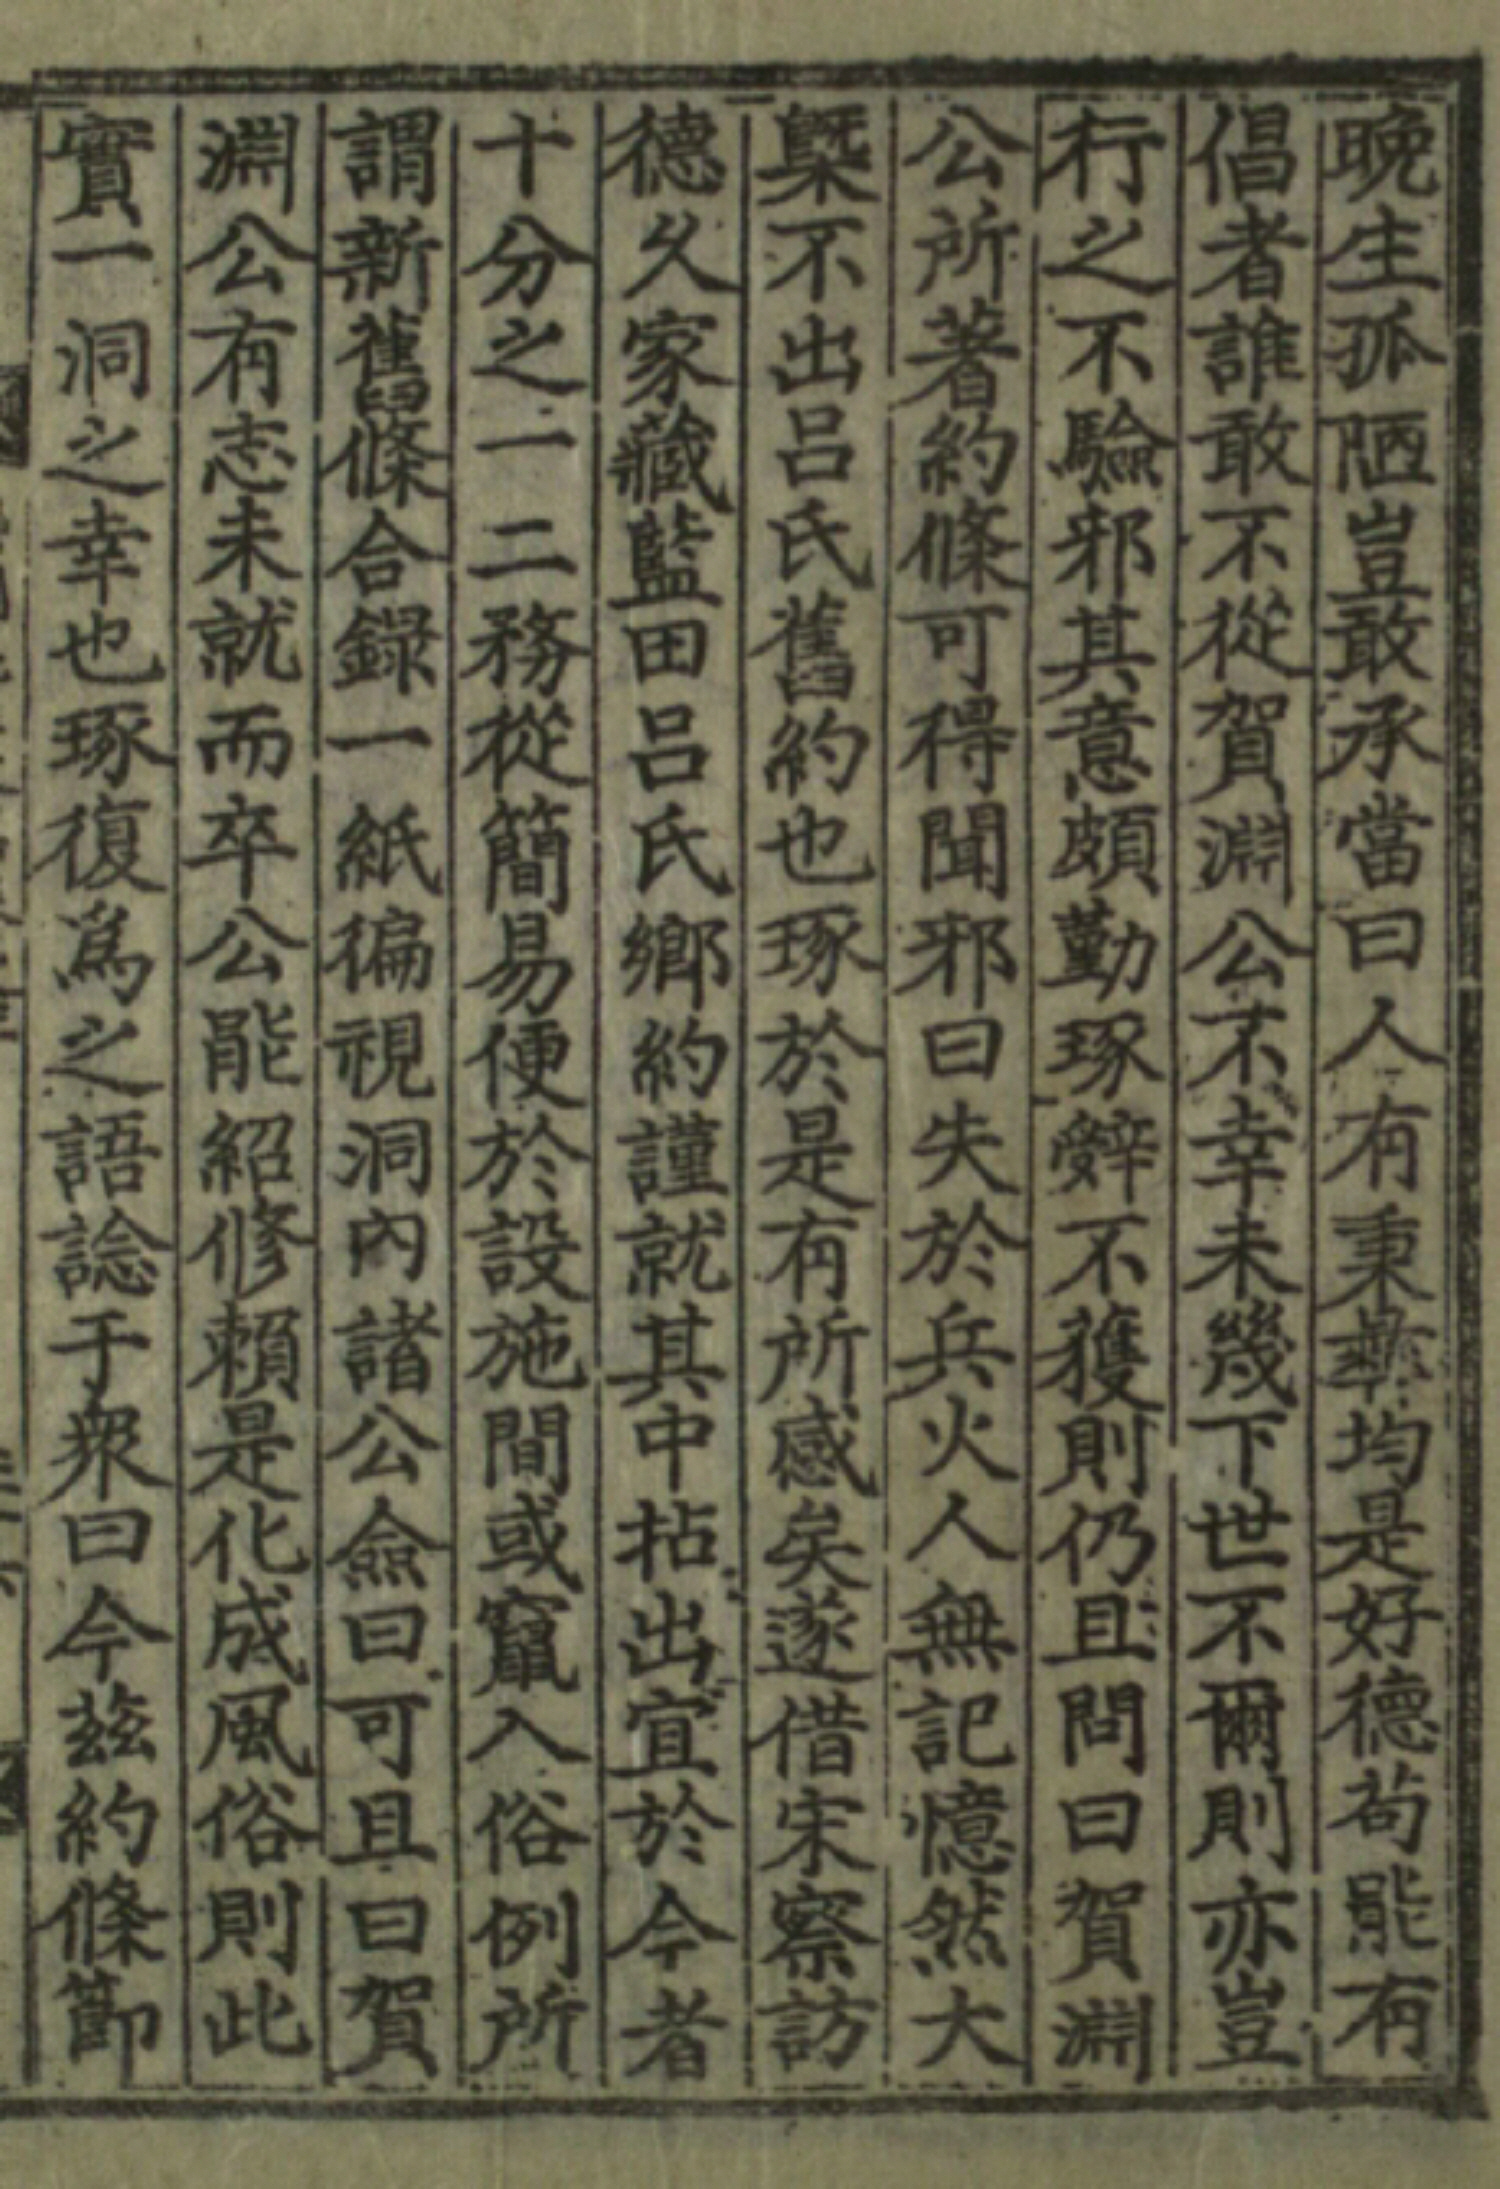 晩生孤陋豈敢承當曰人有秉彝均是好德苟能有
倡者誰敢不從賀淵公不幸未幾下世不爾則亦豈
行之不驗邪其意頗勤琢辤不獲則仍且問曰賀淵
公所著約條可得聞邪曰失於兵火人無記憶然大
槩不出呂氏舊約也琢於是有所感矣遂借宋察訪
德久家藏藍田呂氏鄉約謹就其中拈出宜於今者
十分之一二務從簡易便於設施間或竄入俗例所
謂新舊條合錄一紙徧視洞內諸公僉曰可且曰賀
淵公有志未就而卒公能紹修賴是化成風俗則此
實一洞之幸也琢復爲之語諗于衆曰今玆約條節